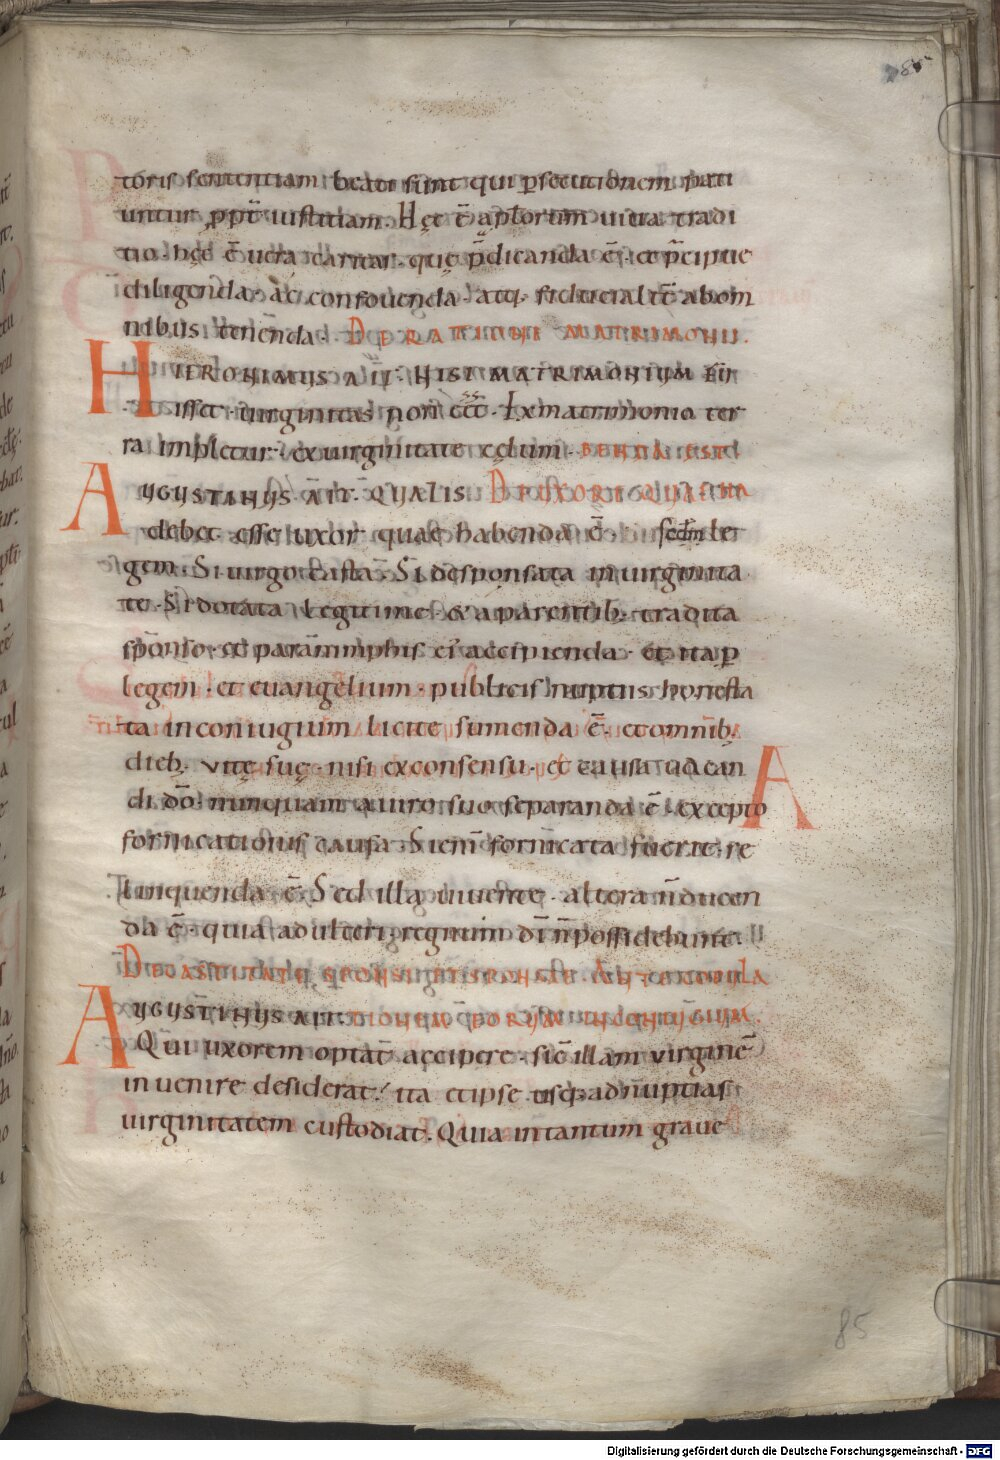 85
toris sententiam beati sunt qui psecutionem pati
untur ppt̄ iustitiam. Hęc ē aplorum uiua tradi
tio. hęc ē uera caritas. quę p̄dicanda ē. et p̄cipue
diligenda. ac confouenda. atq; fiducialit̄ ab om
nibus tenenda. DE RATIONE MATRIMONII.
HIERONIMUS AIT. NISI MATRIMONIUM
isset. uirginitas non eēt. Ex matrimonio ter
ra impletur. ex uirginitate cęlum.
AUGUSTINUS AIT. QUALIS DE UXORE
debet esse uxor quae habenda ē. scdm le
gem. Si uirgo casta. Si desponsata in uirginita
te. Si dotata legitime & a parentib; tradita
sponso. et a paranimphis ei accipienda. et ita p
legem. et euangelium. publicis nuptiis honesta
ta in coniugium licite sumenda ē. et omnib;
dieb; vitę suę. nisi ex consensu. et causa uacan
di dō. nunquam a uiro suo separanda ē. excepto
fornicationis causa. Si eni fornicata fuerit. re
linquenda ē. Sed illa uiuente. altera n̄ ducen
da ē. quia adulteri regnum dī n̄ possidebunt.
DE CASTITATE SPONSI ET SPONSAE ANTE COPULA
AUGUSTINUS AIT. TIONEM EORUM IN CONIUGIUM.
Qui uxorem optat accipere. sic illam virginē
inuenire desiderat. ita et ipse usq; ad nuptias
uirginitatem custodiat. Quia in tantum graue
85
Digitalisierung gefördert durch die Deutsche Forschungsgemeinschaft - DFG